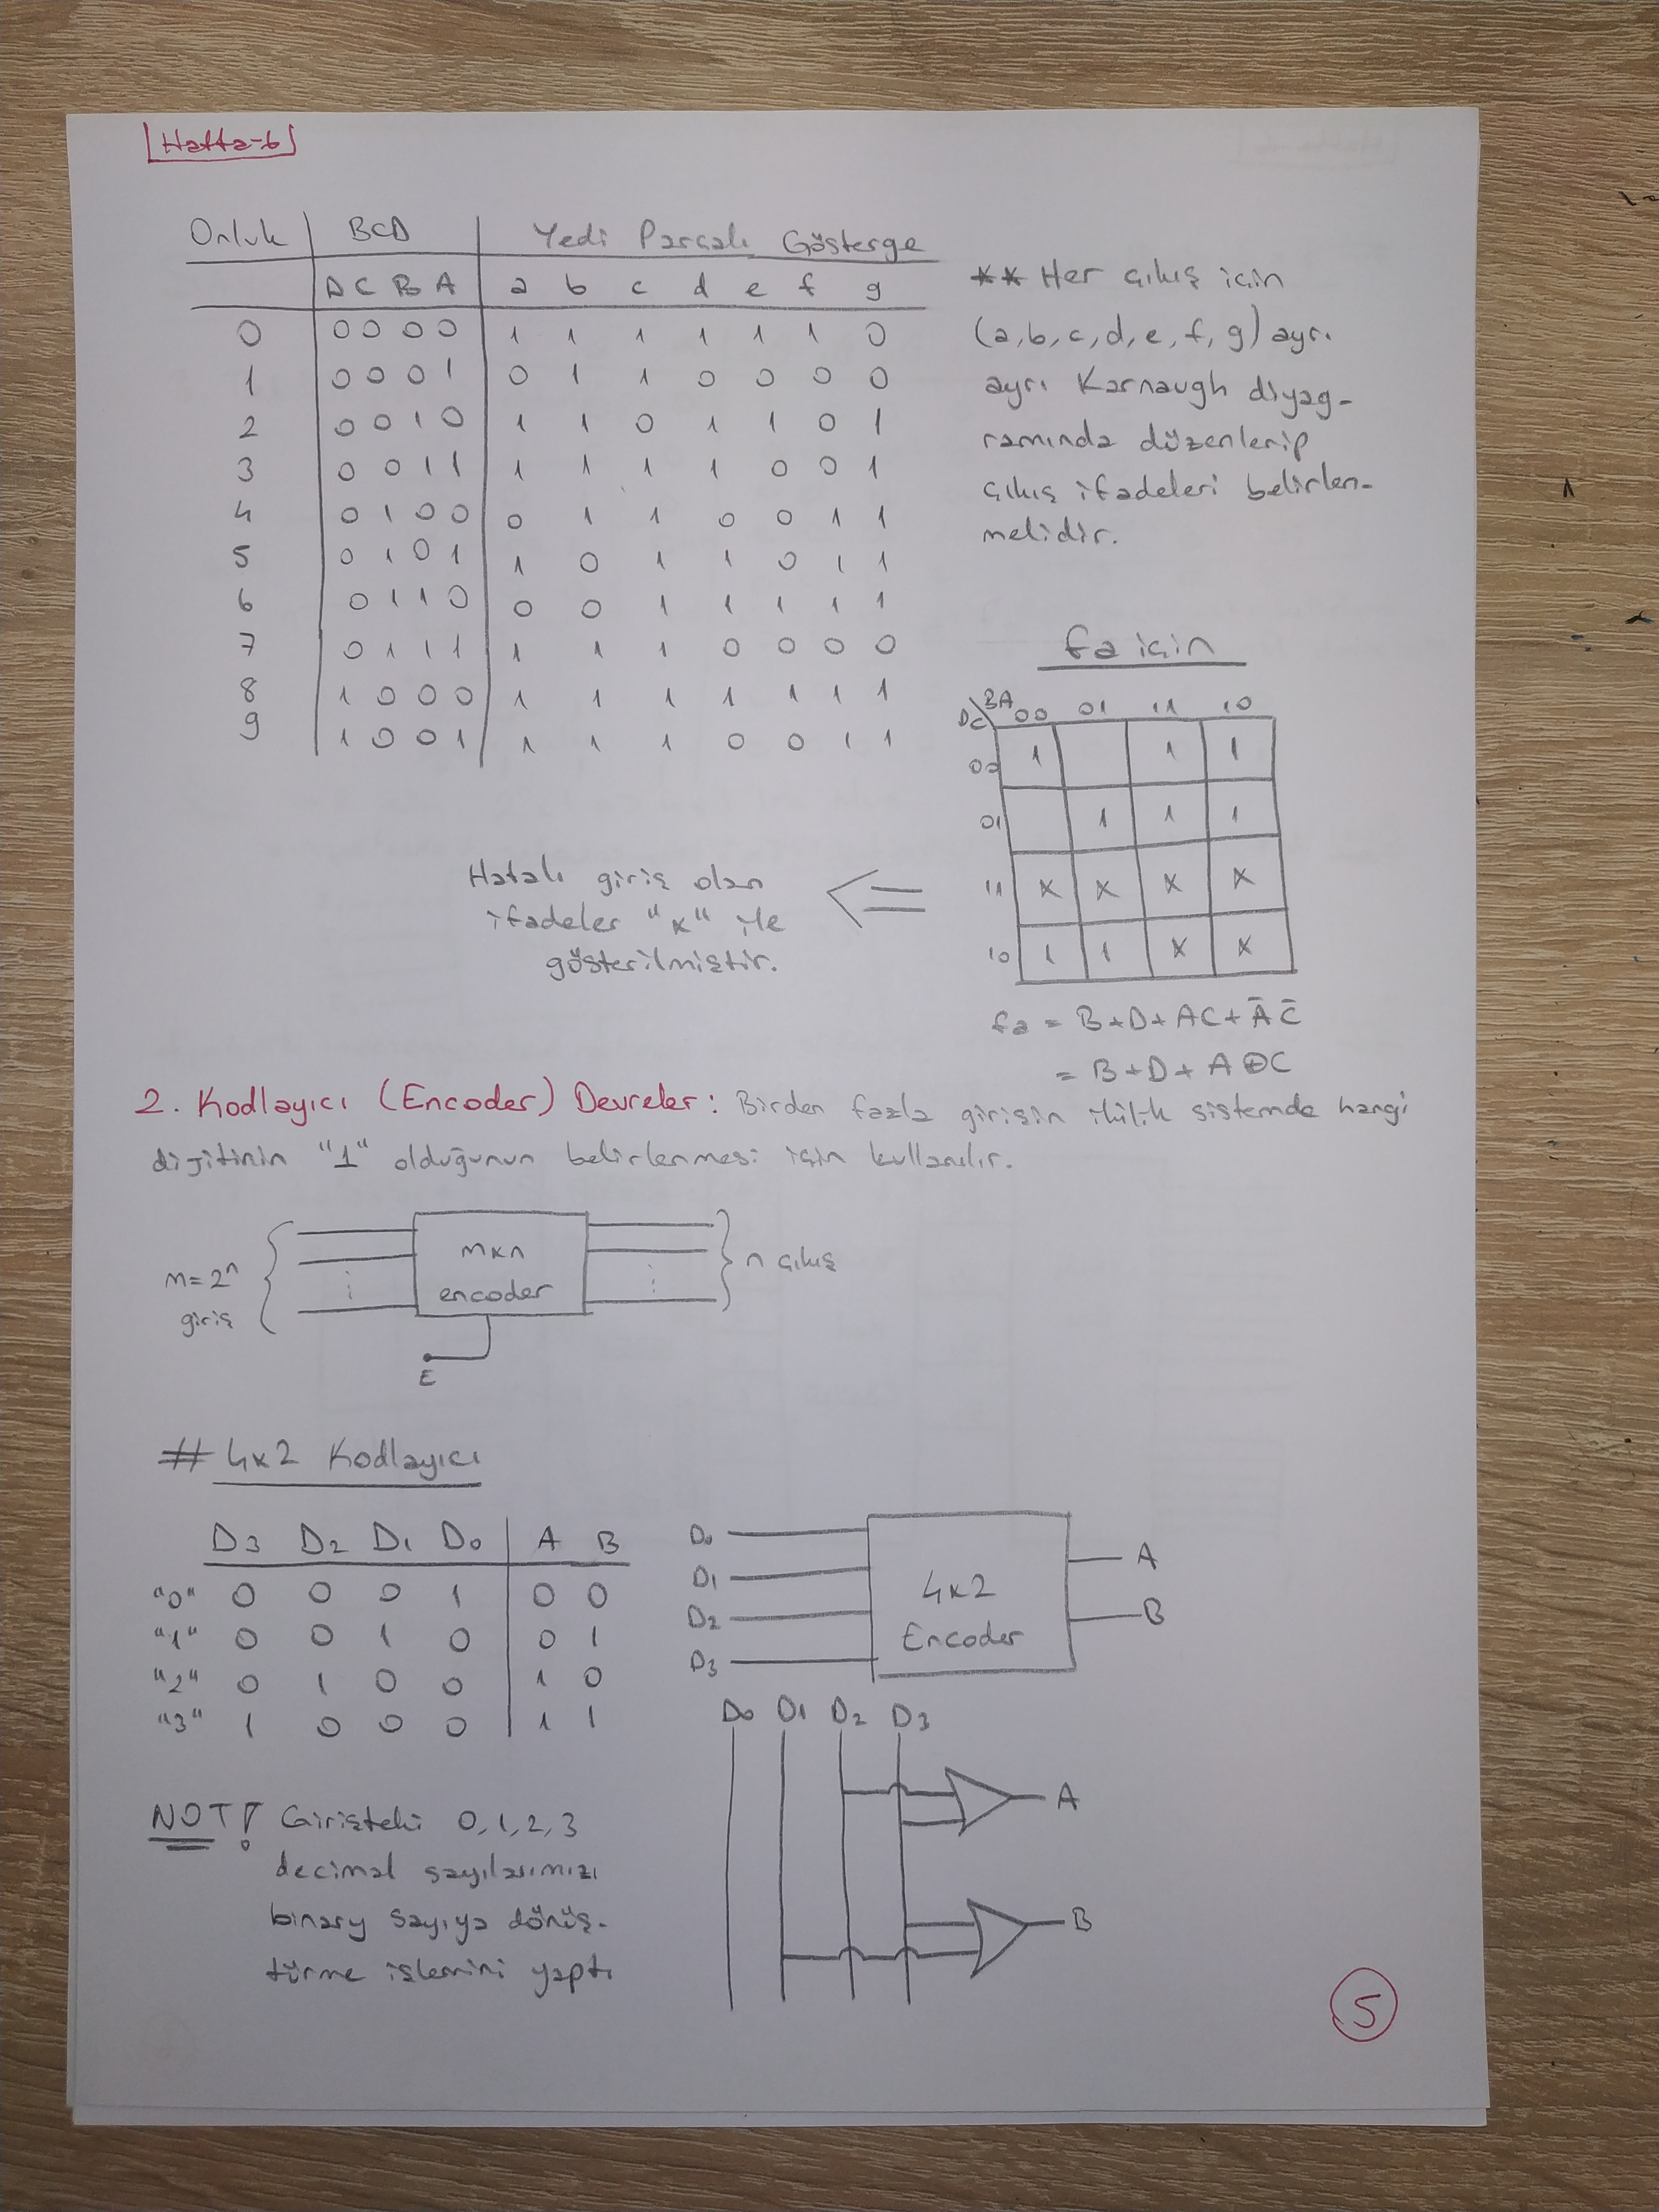 Hafta-6
Onluk BCD Yedi Parçalı Gösterge
D C B A a b c d e f g
0 0 0 0 0 1 1 1 1 1 1 0
1 0 0 0 1 0 1 1 0 0 0 0
2 0 0 1 0 1 1 0 1 1 0 1
3 0 0 1 1 1 1 1 1 0 0 1
4 0 1 0 0 0 1 1 0 0 1 1
5 0 1 0 1 1 0 1 1 0 1 1
6 0 1 1 0 0 0 1 1 1 1 1
7 0 1 1 1 1 1 1 0 0 0 0
8 1 0 0 0 1 1 1 1 1 1 1
9 1 0 0 1 1 1 1 0 0 1 1
** Her çıkış için
(a,b,c,d,e,f,g) ayrı
ayrı Karnaugh diyag-
ramında düzenlenip
çıkış ifadeleri belirlen-
melidir.
fa için
DC\BA 00 01 11 10
00 1 1 1
01 1 1 1
11 x x x x
10 1 1 x x
fa = B+D+AC+A̅C̅
= B+D+A⊕C
Hatalı giriş olan
ifadeler "x" ile
gösterilmiştir.
2. Kodlayıcı (Encoder) Devreler: Birden fazla girişin ikilik sistemde hangi
dijitinin "1" olduğunun belirlenmesi için kullanılır.
m=2ⁿ
giriş
mxn
encoder
E
n çıkış
# 4x2 Kodlayıcı
D3 D2 D1 D0 A B
"0" 0 0 0 1 0 0
"1" 0 0 1 0 0 1
"2" 0 1 0 0 1 0
"3" 1 0 0 0 1 1
NOT! Girişteki 0,1,2,3
decimal sayılarımızı
binary sayıya dönüş-
türme işlemini yaptı
D0
D1
D2
D3
4x2
Encoder
A
B
D0 D1 D2 D3
A
B
5